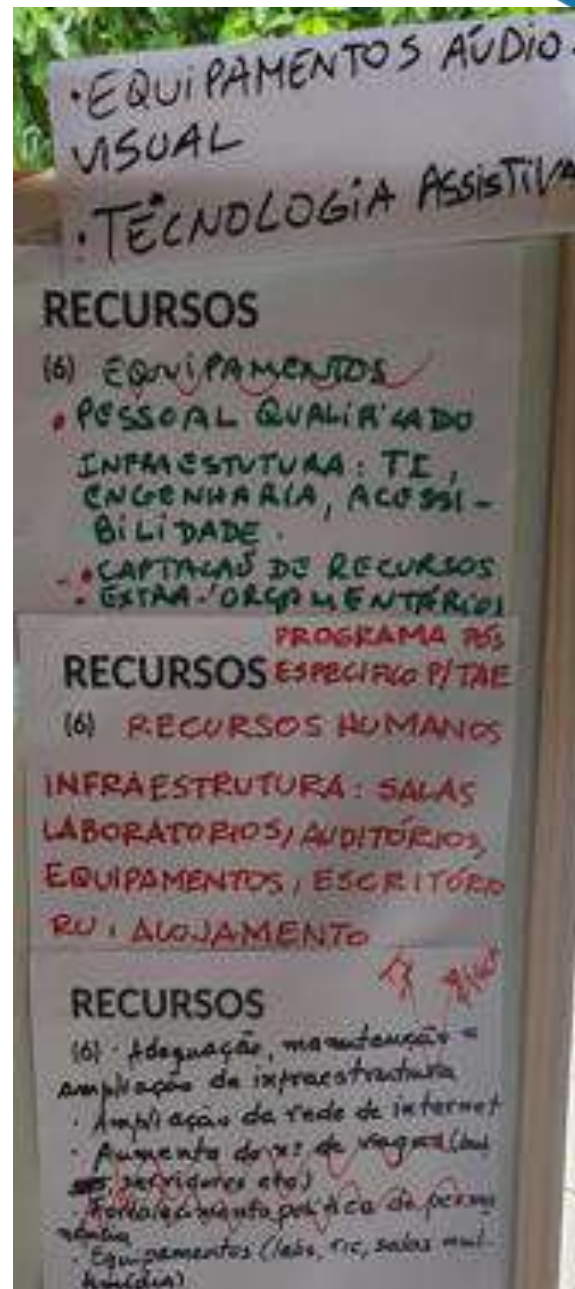 • EQUIPAMENTOS AÚDIO-
VISUAL
• TECNOLOGIA ASSISTIVA
RECURSOS
(6) EQUIPAMENTOS
• PESSOAL QUALIFICADO
INFRAESTUTURA: TI,
ENGENHARIA, ACESSI-
BILIDADE.
- • CAPTAÇAÕ DE RECURSOS
- EXTRA-ORÇAMENTÁRIOS
PROGRAMA PÓS
RECURSOS ESPECIFICO P/TAE
(6) RECURSOS HUMANOS
INFRAESTRUTURA: SALAS
LABORATORIOS, AUDITÓRIOS,
EQUIPAMENTOS, ESCRITÓRIO
RU, ALOJAMENTO
RECURSOS
(6) • Adequação, manutenção e
ampliação da infraestrutura
• Ampliação da rede de internet
• Aumento do nº de
servidores etc)
• Fortalecimento política de perma
nência
• Equipamentos (labs, TIC, salas mul-
timídia)